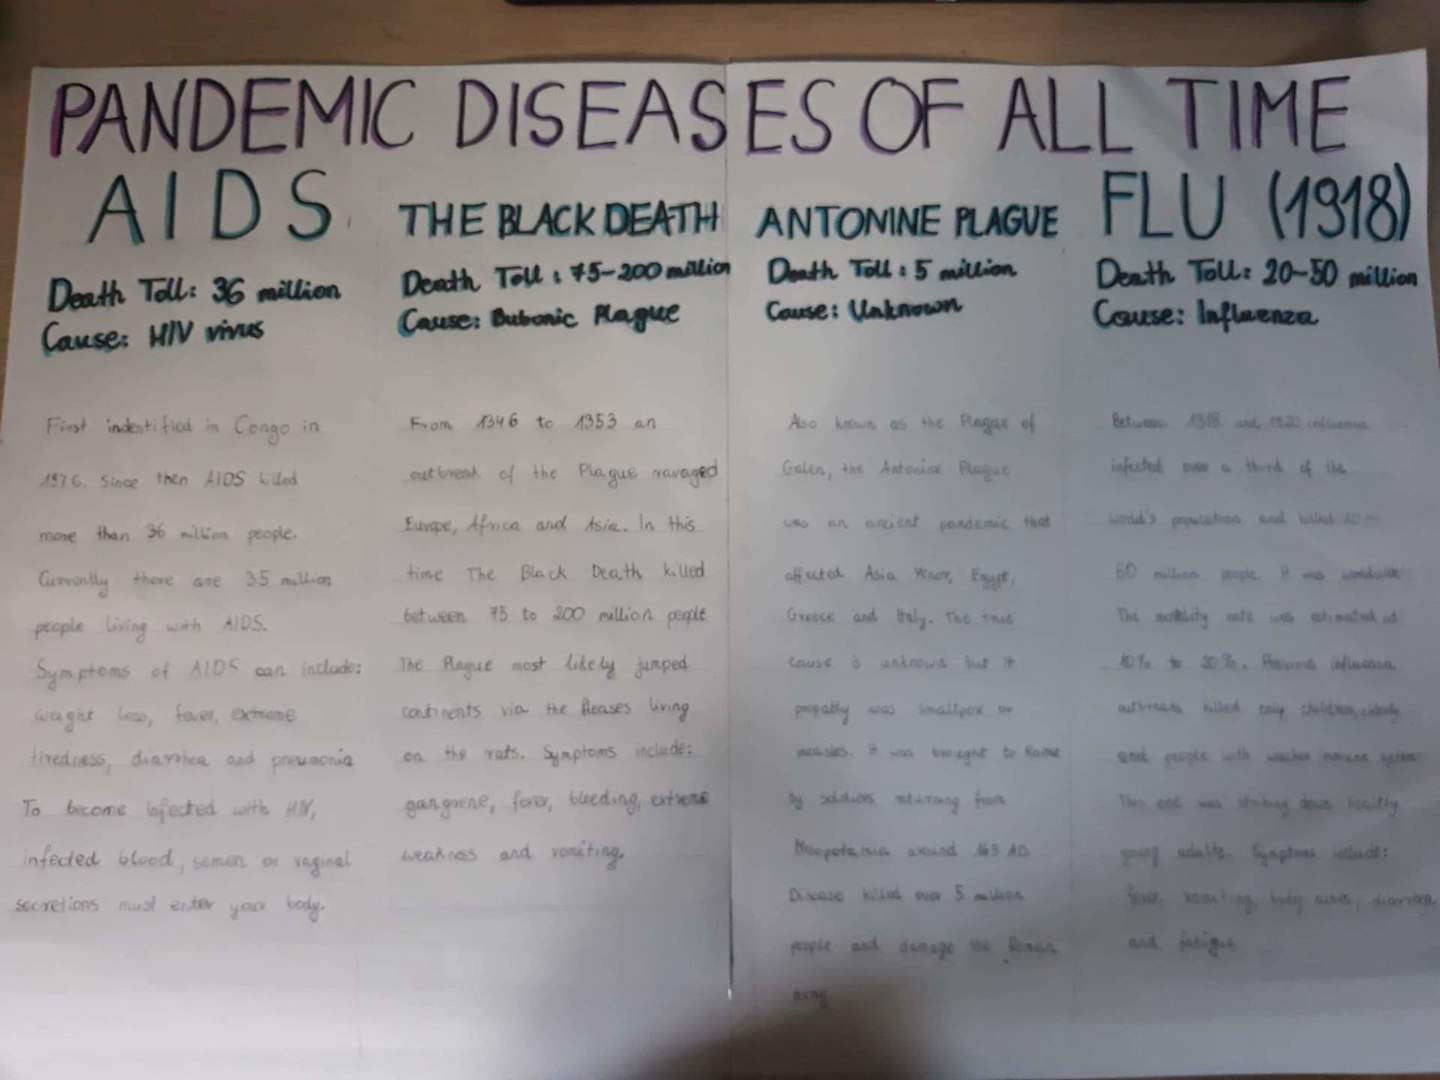 PANDEMIC DISEASES OF ALL TIME
AIDS
Death Toll: 36 million
Cause: HIV virus
First indentified in Congo in
1976. Since then AIDS killed
more than 36 million people.
Currently there are 35 million
people living with AIDS.
Symptoms of AIDS can include:
weight loss, fever, extreme
tiredness, diarrhea and pneumonia
To become infected with HIV,
infected blood, semen or vaginal
secretions must enter your body.
THE BLACK DEATH
Death Toll: 75-200 million
Cause: Bubonic Plague
From 1346 to 1353 an
outbreak of the Plague ravaged
Europe, Africa and Asia. In this
time The Black Death killed
between 75 to 200 million people
The Plague most likely jumped
continents via the fleases living
on the rats. Symptoms include:
gangrene, fever, bleeding, extreme
weakness and vomiting.
ANTONINE PLAGUE
Death Toll: 5 million
Cause: Unknown
Also known as the Plague of
Galen, the Antonine Plague
was an ancient pandemic that
affected Asia Minor, Egypt,
Greece and Italy. The true
cause is unknown but it
propably was smallpox or
measles. It was brought to Rome
by soldiers returning from
Mesopotamia around 165 AD.
Disease killed over 5 million
people and damage the Roman
army.
FLU (1918)
Death Toll: 20-50 million
Cause: Influenza
Between 1918 and 1920 influenza
infected over a third of the
world's population and killed
50 million people. It was worldwide
The mortality rate was estimated at
10% to 20%. Previous influenza
outbreaks killed only children, elderly
and people with weaker immune system
This one was striking down healthy
young adults. Symptoms include:
fever, vomiting, body aches, diarrhea
and fatigue